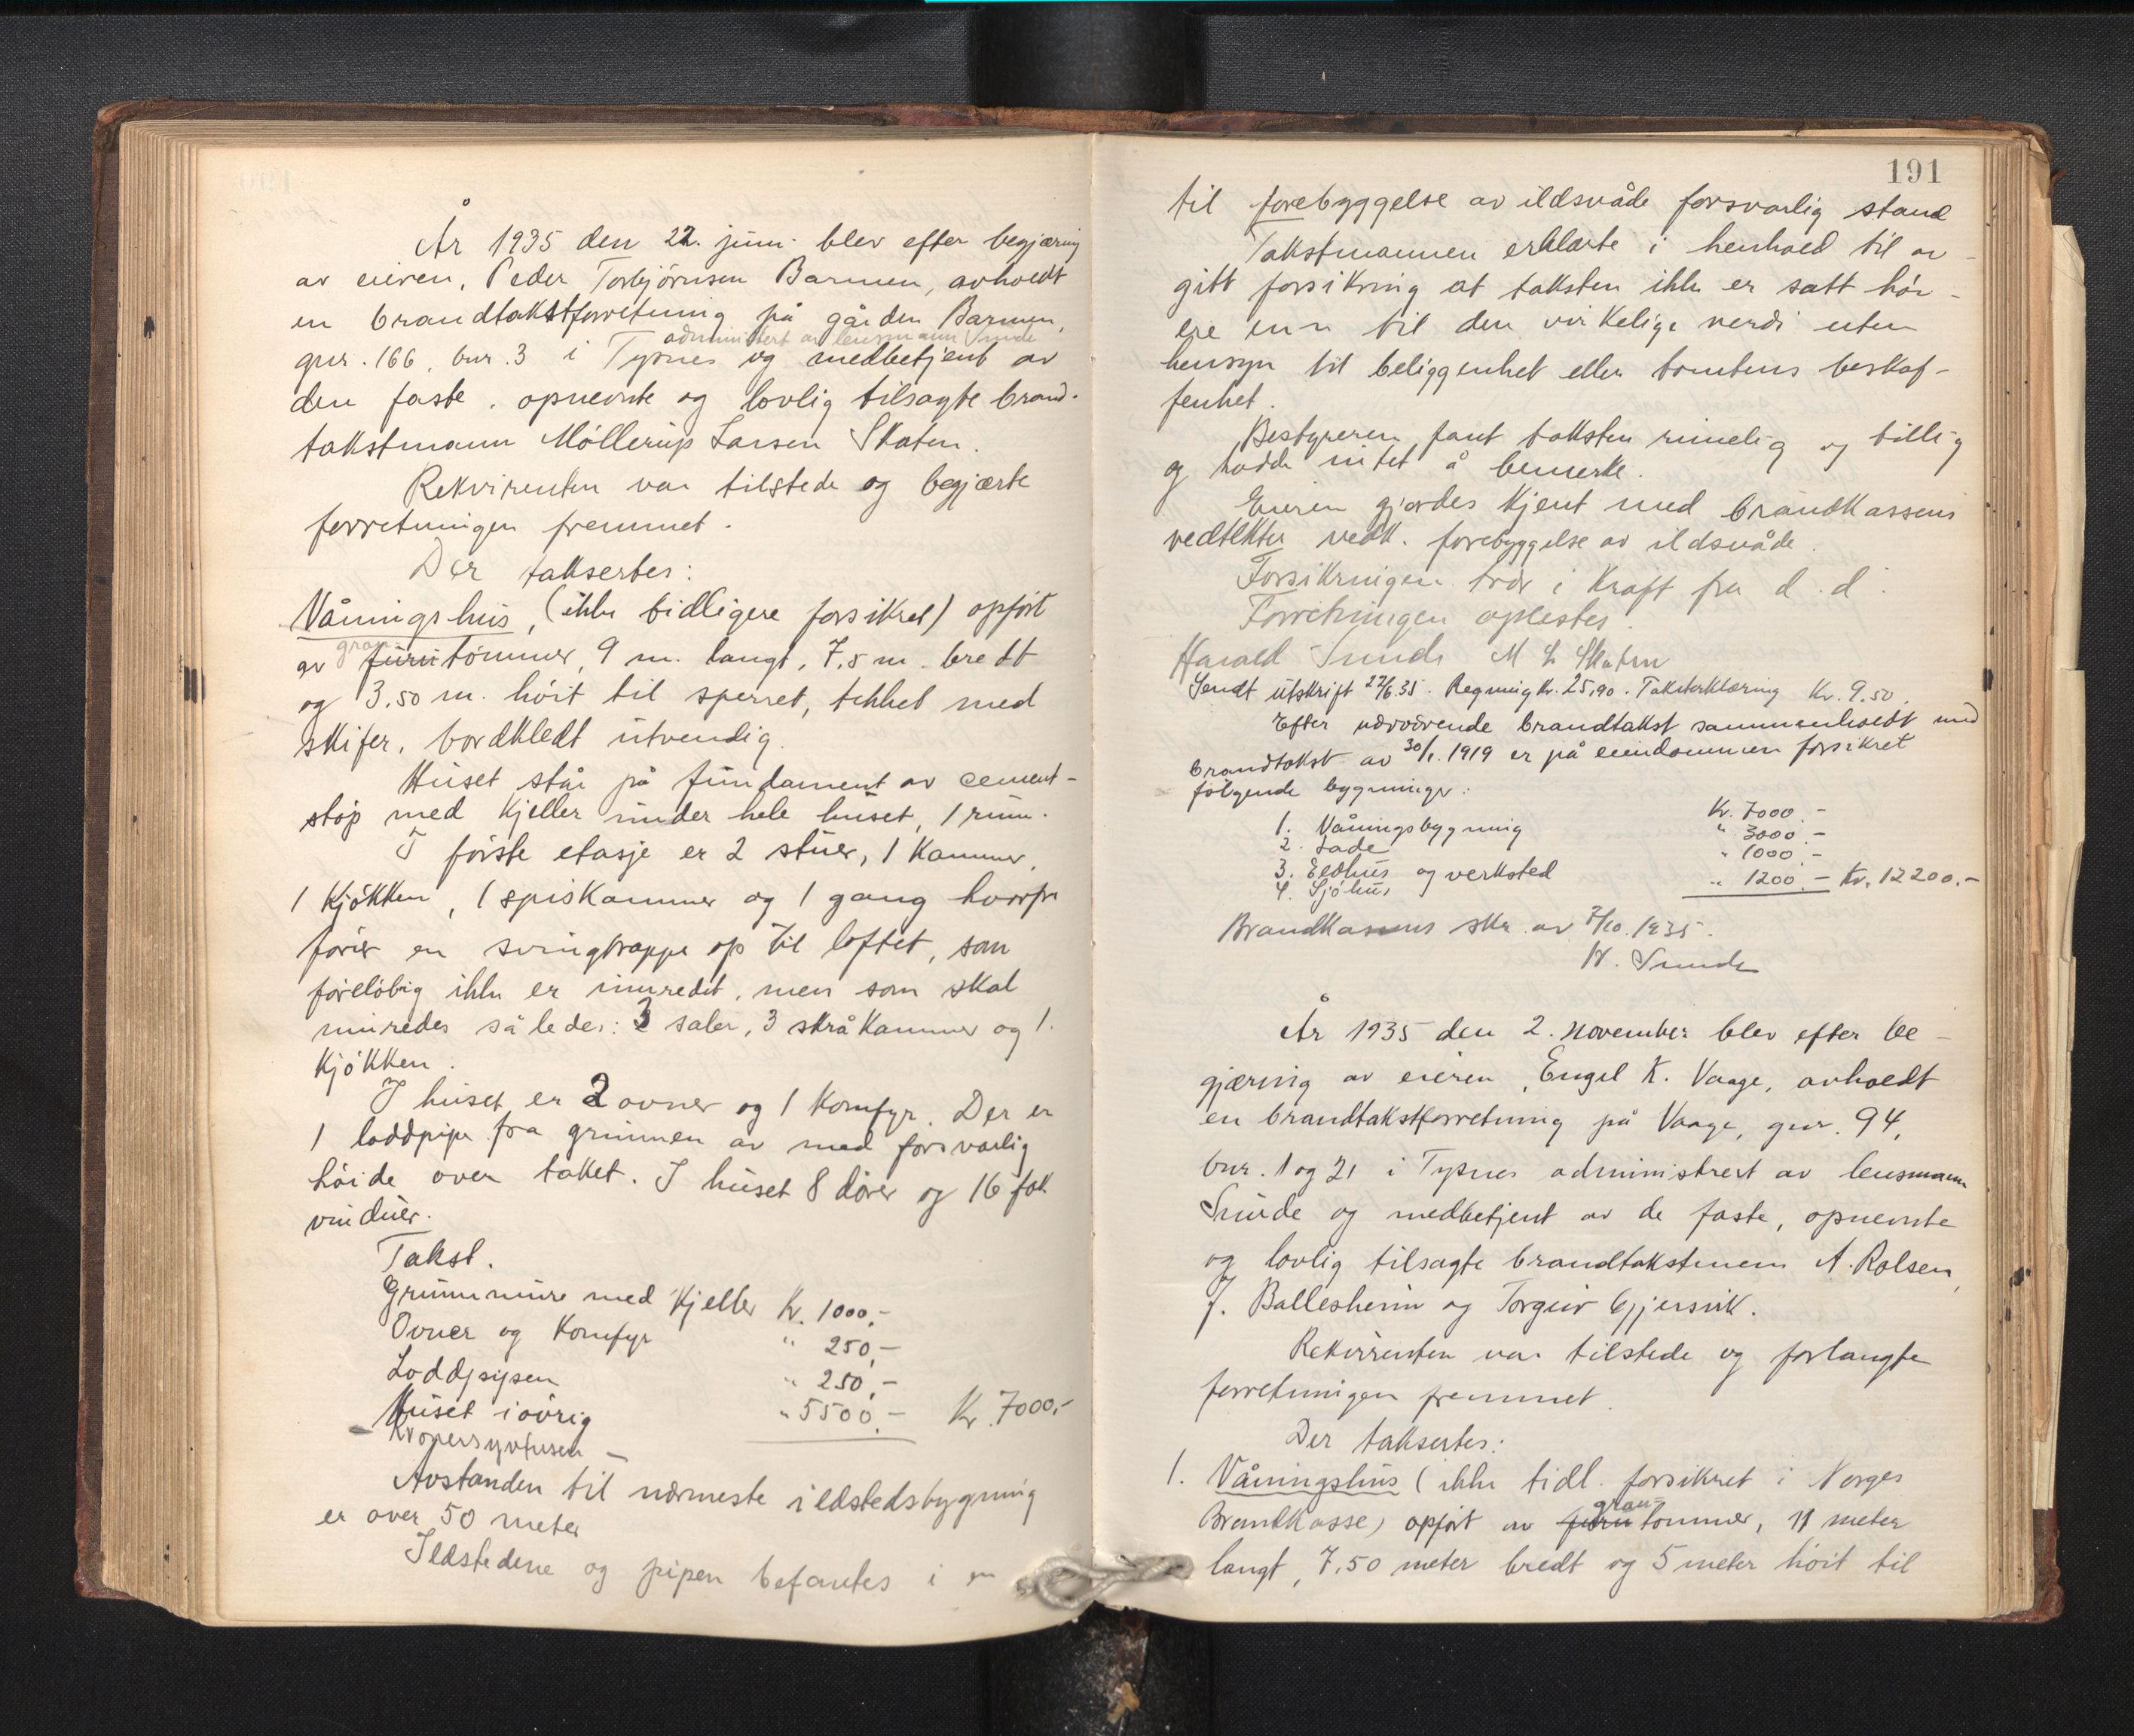 År 1935 den 22. juni blev efter begjæring
av eieren, Peder Torbjørnsen Barmen, avholdt
en brandtakstforretning på gården Barmen,
administrert av lensmann Sunde
gnr. 166, bnr. 3 i Tysnes og medbetjent av
den faste, opnevnte og lovlig tilsagte brand-
takstmann Møllerup Larsen Skaten.
Rekvirenten var tilstede og begjærte
forretningen fremmet.
Der taksertes:
Våningshus, (ikke tidligere forsikret) opført
gran
av furutømmer, 9 m. langt, 7,5 m. bredt
og 3,50 m. høit til sperret, tekket med
skifer, bordkledt utvendig.
Huset står på fundament av cement-
støp med kjeller under hele huset, 1 rum.
I første etasje er 2 stuer, 1 kammer,
1 kjøkken, 1 spiskammer og 1 gang hvorfra
fører en svingtrappe op til loftet, som
foreløbig ikke er innredet, men som skal
innredes således: 3 saler, 3 skråkammer og 1
kjøkken.
I huset er 2 ovner og 1 komfyr. Der er
1 loddpipe fra grunnen av med forsvarlig
høide over taket. I huset 8 dører og 16 fok
vinduer.
Takst.
Grunnmure med kjeller Kr. 1000,-
Ovner og komfyr " 250,-
Loddpipen " 250,-
Huset iøvrig " 5500,- Kr. 7000,-
Avstanden til nærmeste ildstedsbygning
er over 50 meter
Ildstedene og pipen befantes i en
191
til forebyggelse av ildsvåde forsvarlig stand
Takstmannen erklærte i henhold til av-
gitt forsikring at taksten ikke er satt høi-
ere enn til den virkelige verdi uten
hensyn til beliggenhet eller tomtens beskaf-
fenhet.
Bestyreren fant taksten rimelig og billig
og hadde intet å bemerke.
Eieren gjordes kjent med brandkassens
vedtekter vedk. forebyggelse av ildsvåde.
Forsikringen trær i kraft fra d. d.
Forretningen oplestes.
Harald Sunde M L Skaten
Sendt utskrift 27/6.35. Regning kr. 25,90. Taksterklæring Kr. 9.50.
Efter nærværende brandtakst sammenholdt med
brandtakst av 30/1. 1919 er på eiendommen forsikret
følgende bygninger:
1. Våningsbygning Kr. 7000.-
2. Lade " 3000.-
3. Eldhus og verksted " 1000.-
4. Sjøhus " 1200.- Kr. 12200.-
Brandkassens skr. av 7/10. 1935.
H. Sunde
År 1935 den 2. november blev efter be-
gjæring av eieren, Engel K. Vaage, avholdt
en brandtakstforretning på Vaage, gnr. 94,
bnr. 1 og 21 i Tysnes administrert av lensmann
Sunde og medbetjent av de faste, opnevnte
og lovlig tilsagte brandtakstmenn A. Rolsen,
J. Ballesheim og Torgeir Gjersvik.
Rekvirenten var tilstede og forlangte
forretningen fremmet.
Der taksertes:
1. Våningshus (ikke tidl. forsikret i Norges
gran-
Brandkasse) opført av furu tømmer, 11 meter
langt, 7,50 meter bredt og 5 meter høit til